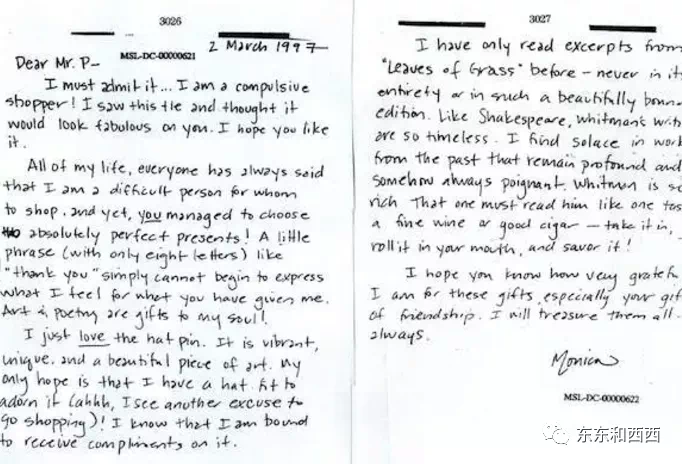 3026
2 March 1997
MSL-DC-00000621
Dear Mr. P-
I must admit it... I am a compulsive
shopper! I saw this tie and thought it
would look fabulous on you. I hope you like
it.
All of my life, everyone has always said
that I am a difficult person for whom
to shop. and yet, you managed to choose
absolutely perfect presents! A little
phrase (with only eight letters) like
"thank you" simply cannot begin to express
what I feel for what you have given me.
Art & poetry are gifts to my soul!
I just love the hat pin. It is vibrant,
unique, and a beautiful piece of art. My
only hope is that I have a hat fit to
adorn it (ahhh, I see another excuse to
go shopping)! I know that I am bound
to receive compliments on it.
3027
I have only read excerpts from
"Leaves of Grass" before - never in its
entirety or in such a beautifully boun
edition. Like Shakespeare, Whitman's writ
are so timeless. I find solace in work
from the past that remain profound and
somehow always poignant. Whitman is so
rich that one must read him like one tas
a fine wine or good cigar - take it in,
roll it in your mouth, and savor it!
I hope you know how very gratefu
I am for these gifts, especially your gif
of friendship. I will treasure them all-
always.
Monica
MSL-DC-00000622
东东和西西